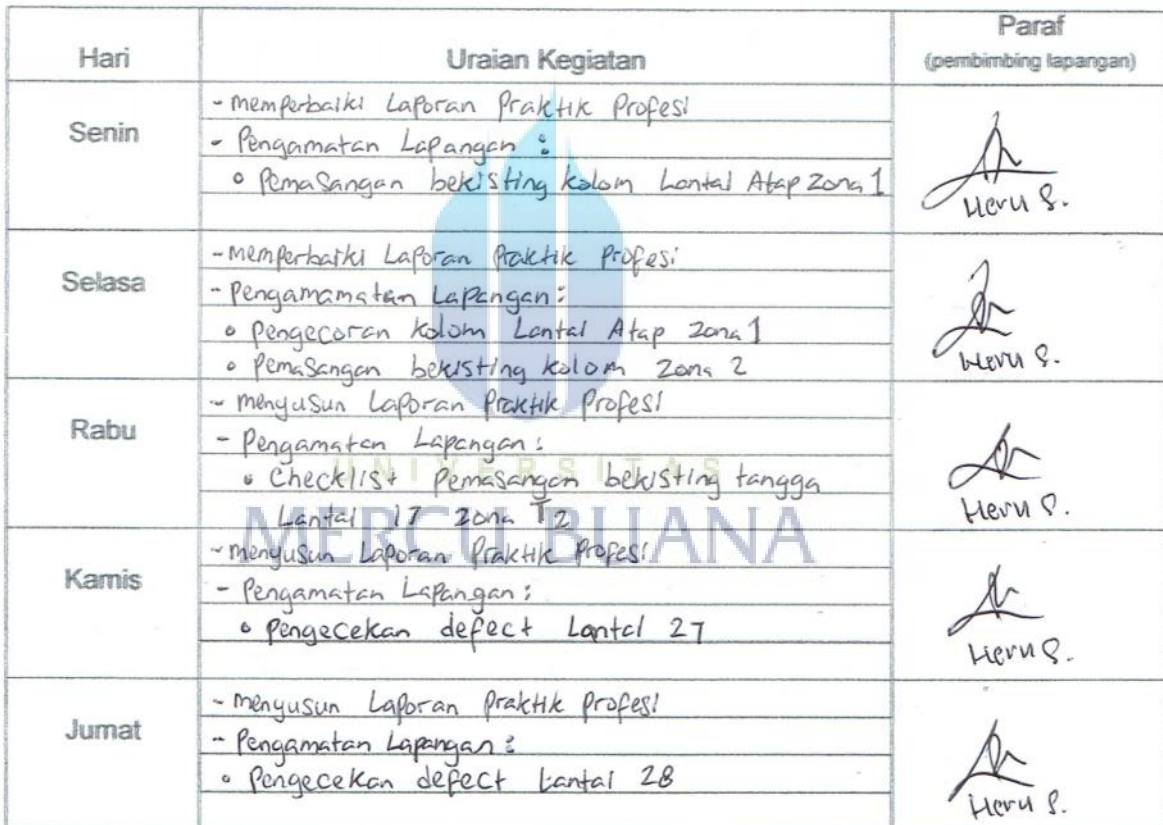 Hari Uraian Kegiatan Paraf
(pembimbing lapangan)
Senin
- memperbaiki Laporan Praktik Profesi
- Pengamatan Lapangan :
• Pemasangan bekisting kolom Lantai Atap Zona 1
Heru S.
Selasa
- memperbaiki Laporan Praktik Profesi
- Pengamamatan Lapangan :
• Pengecoran kolom Lantai Atap Zona 1
• Pemasangan bekisting kolom Zona 2
Heru S.
Rabu
- menyusun Laporan Praktik Profesi
- Pengamatan Lapangan :
• Checklist Pemasangan bekisting tangga
Lantai 17 Zona T2
Heru S.
Kamis
- menyusun Laporan Praktik Profesi
- Pengamatan Lapangan :
• Pengecekan defect Lantai 27
Heru S.
Jumat
- menyusun Laporan Praktik Profesi
- Pengamatan Lapangan :
• Pengecekan defect Lantai 28
Heru S.
UNIVERSITAS
MERCU BUANA